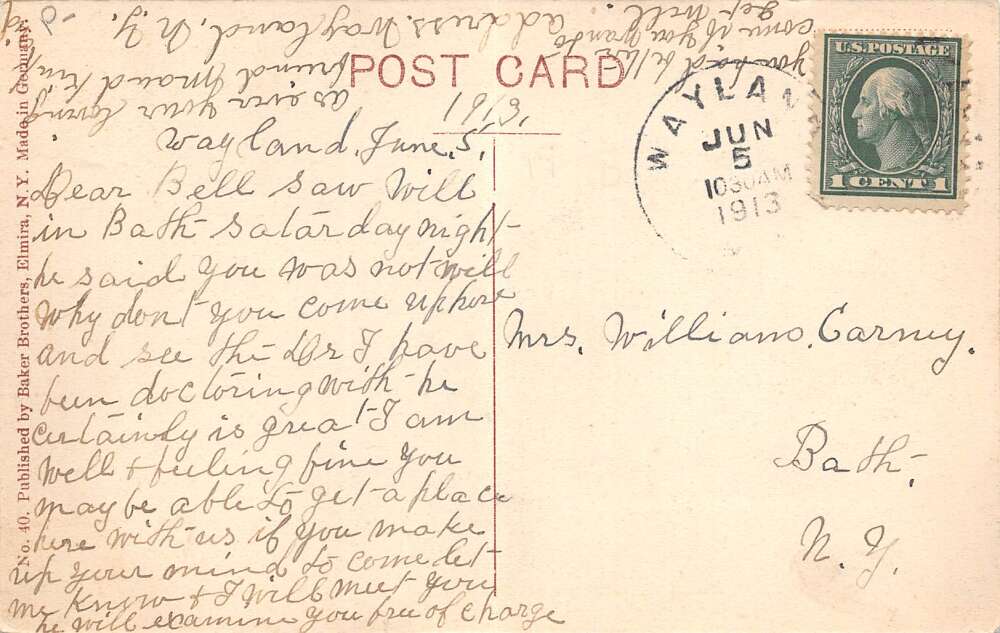 POST CARD
U.S. POSTAGE
1 CENT 1
WAYLAN
JUN
5
1030AM
1913
No. 40. Published by Baker Brothers, Elmira, N. Y. Made in Germany.
1913.
Wayland, June, 5,
Dear Bell saw Will
in Bath Saturday night
he said you was not will
why don't you come up here
and see the Dr I have
been doctoring with he
certainly is great I am
well & feeling fine you
may be able to get a place
here with us if you make
up your mind to come let
me know & I will meet you
he will examine you free of charge
you had better
come if you want to
get well. address. Wayland, N. Y.
as ever your loving
friend Maud
Mrs. William Carney.
Bath,
N. Y.